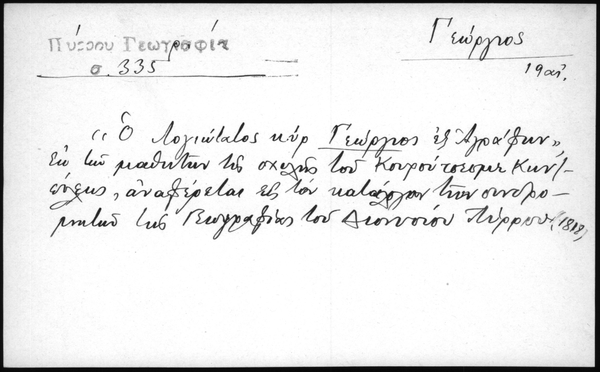 Πύρρου Γεωγραφία
σ. 335
Γεώργιος
19 αἰ.
"Ὁ λογιώτατος κύρ Γεώργιος ἐξ Ἀγράφων",
ἐκ τῶν μαθητῶν τῆς σχολῆς τοῦ Κουρούτσεσμε Κων/
πόλεως, ἀναφέρεται εἰς τόν κατάλογον τῶν συνδρο-
μητῶν τῆς Γεωγραφίας τοῦ Διονυσίου Πύρρου (1818)